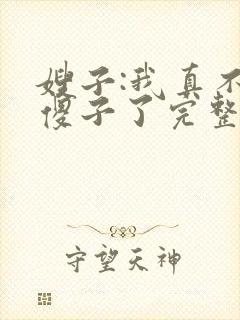 嫂子:我真不
傻子了完整
守望天神